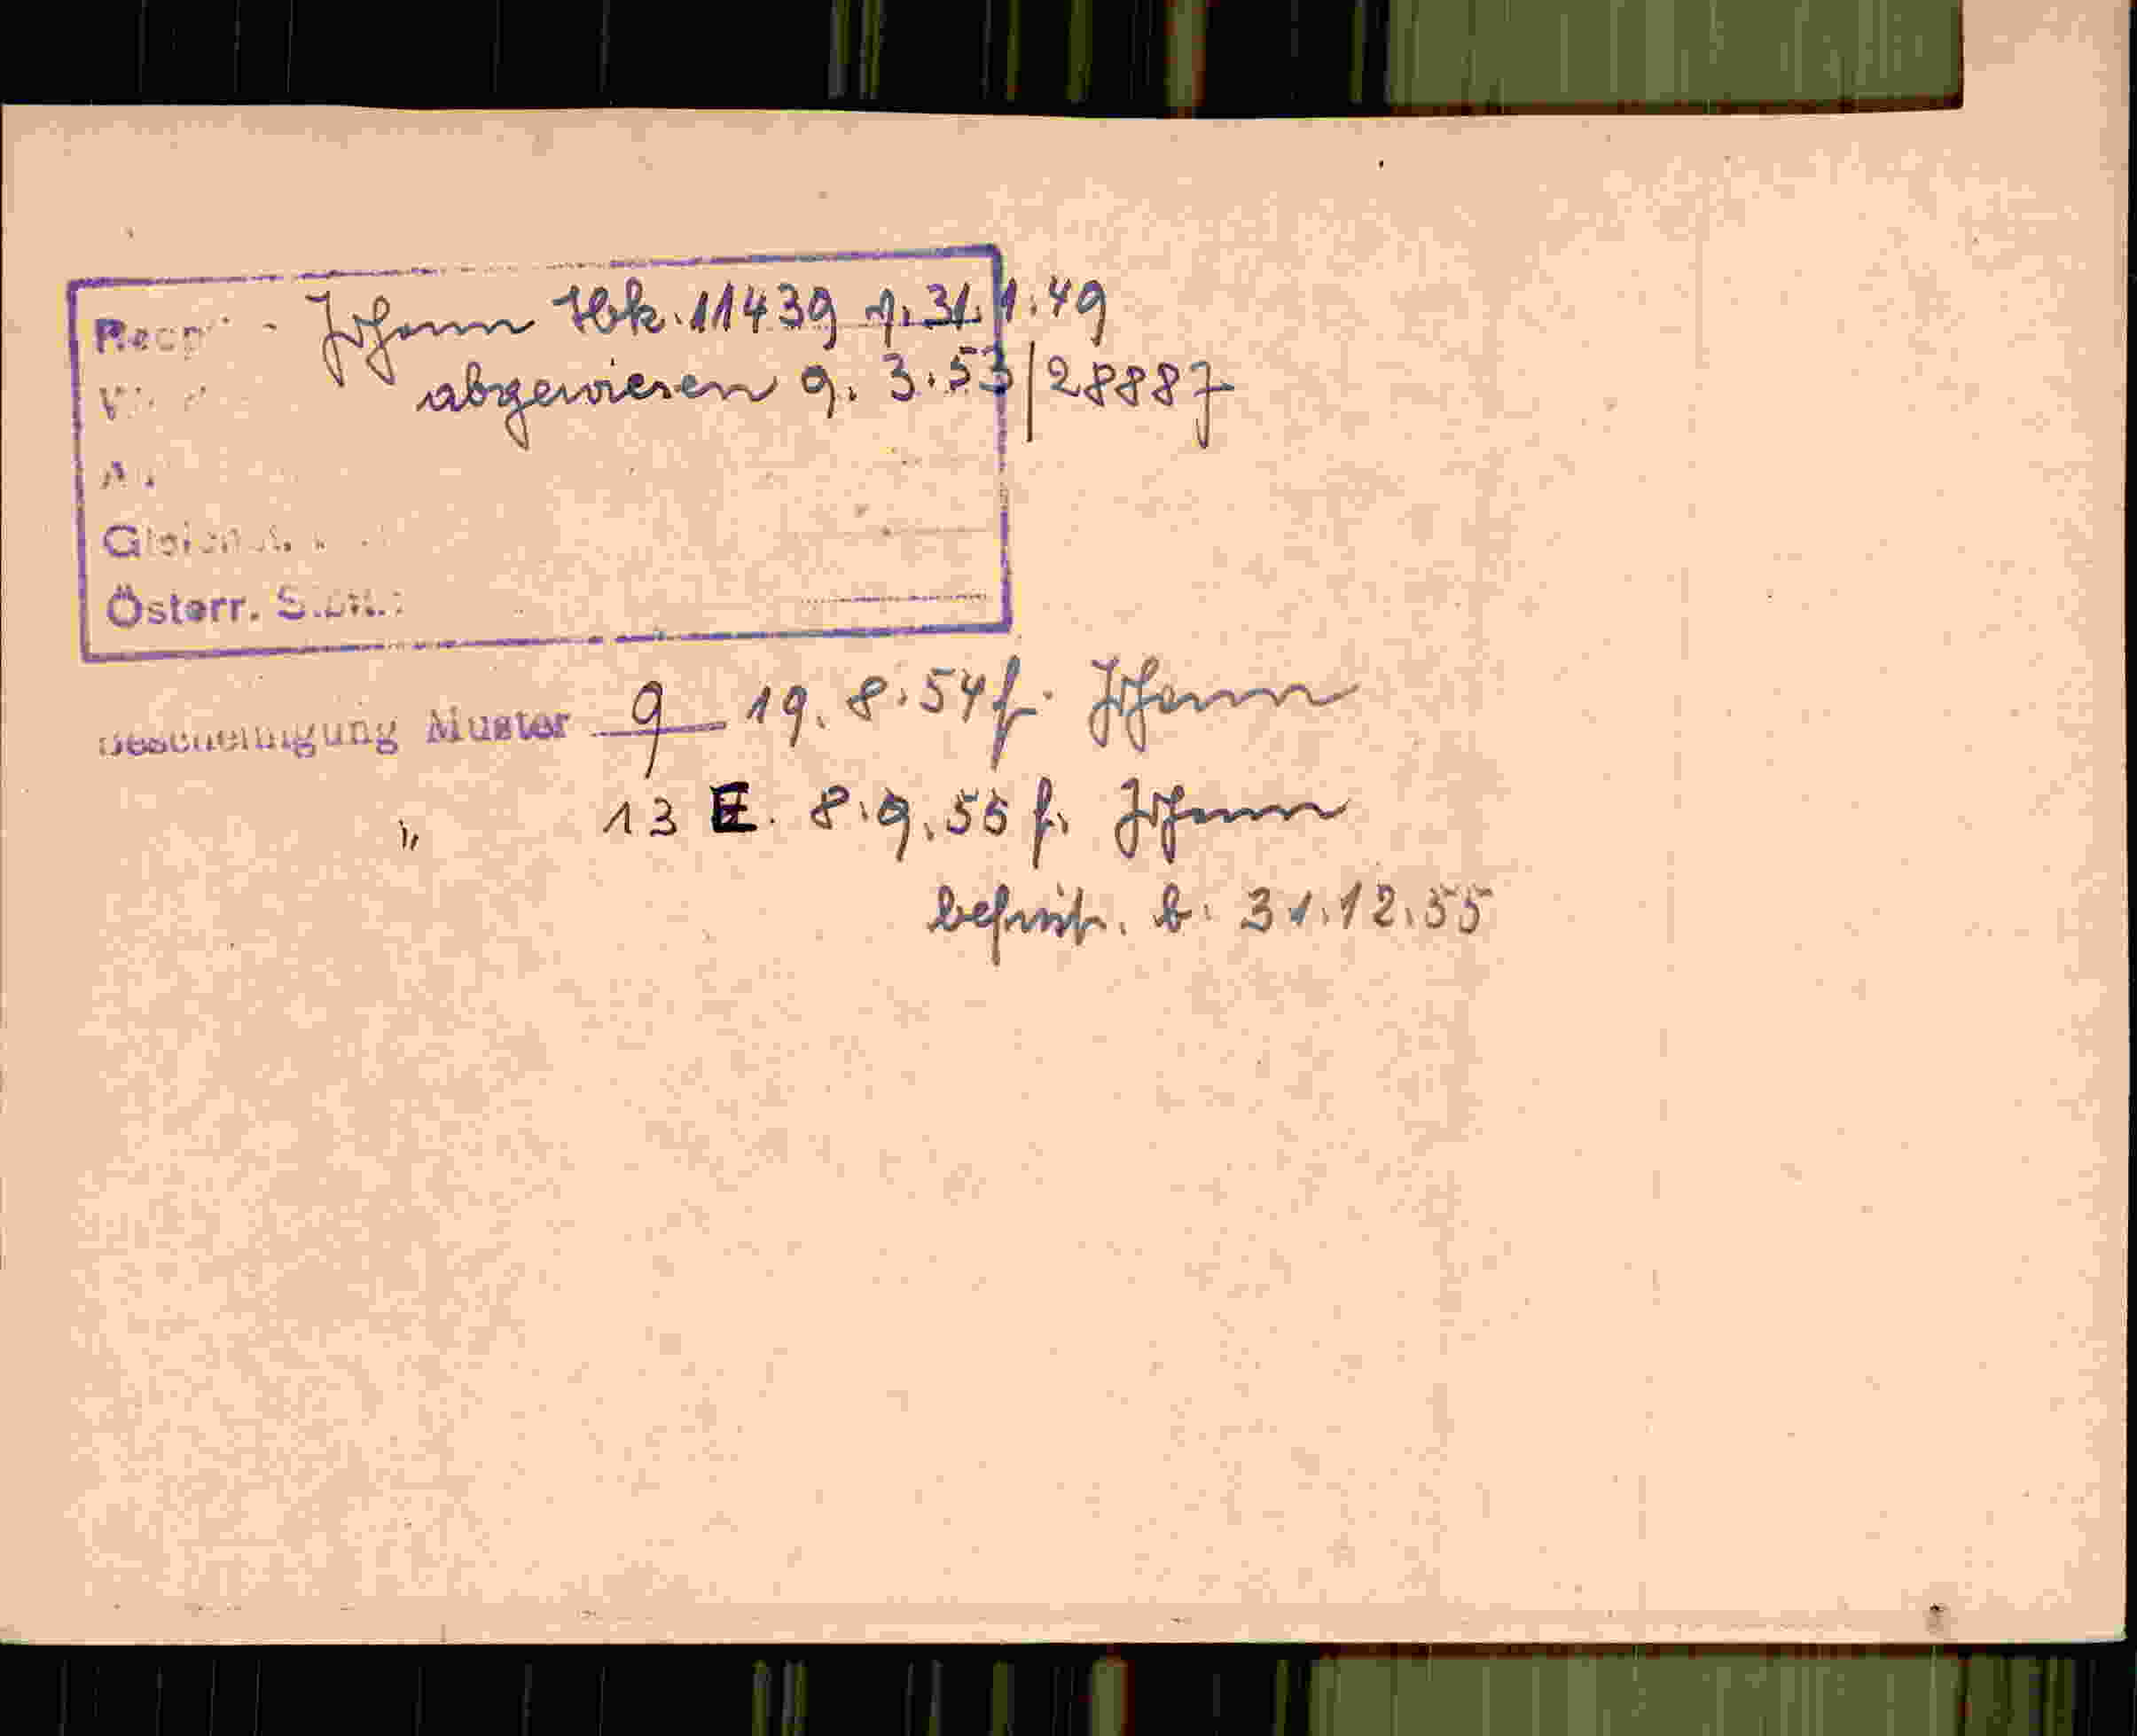 Johann Hbk. 11439 v. 31.1.49
abgewiesen 9. 3. 53/28887
Österr.
Bescheinigung Muster 9 19. 8. 54 f. Johann
" 13 E. 8. 9. 55 f. Johann
befrist. b. 31.12.55